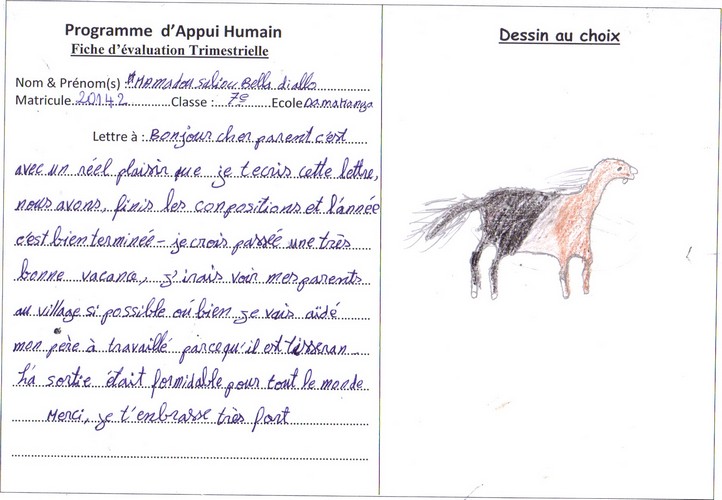 Programme d'Appui Humain
Fiche d'évaluation Trimestrielle
Dessin au choix
Nom & Prénom(s) : Mamadou Saliou Bella diallo
Matricule 20142 Classe : 7e Ecole Damakanya
Lettre à : Bonjour cher parent c'est
avec un réel plaisir que je t ecris cette lettre,
nous avons, finis les compositions et l'année
c'est bien terminée - je crois passée une très
bonne vacance, j'irais voir mes parents
au village si possible où bien je vais aïdé
mon père à travaillé parcequ'il est tisseran
La sortie était formidable pour tout le monde
Merci, je t'enbrasse très fort